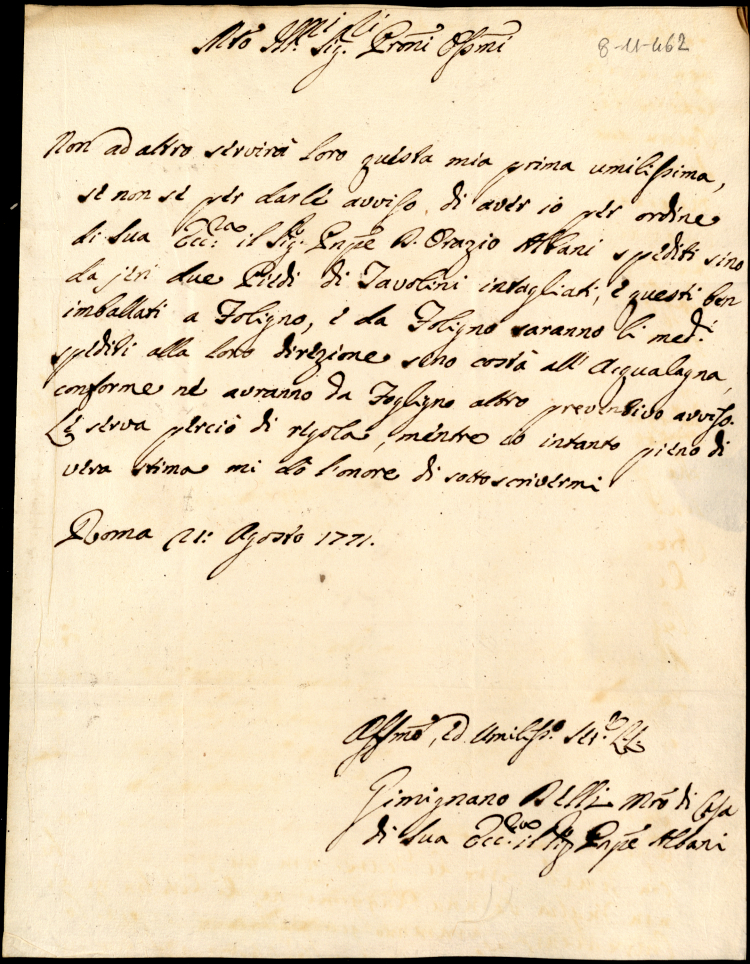 Mto Illmi Sigli Proñi Ossmi
8-11-462
Non ad altro servirà loro questa mia prima umilissima,
se non se per darle avviso di aver io per ordine
di Sua Ecc.za il Sig.e Pnpe D. Orazio Albani spediti sino
da jeri due Piedi di Tavolini intagliati, e questi ben
imballati a Foligno, e da Foligno saranno li med.i
spediti alla loro direzione sino costà all'Acqualagna,
conforme nè avranno da Fogligno altro preventivo avviso.
Le serva perciò di regola, mentre io intanto pieno di
vera stima mi dò l'onore di sottoscrivermi
Roma 21: Agosto 1771.
Affmo, ed Umiliss.o Ser.re
Gimignano Belli Mro di Casa
di Sua Ecc.za il Sig Pnpe Albani